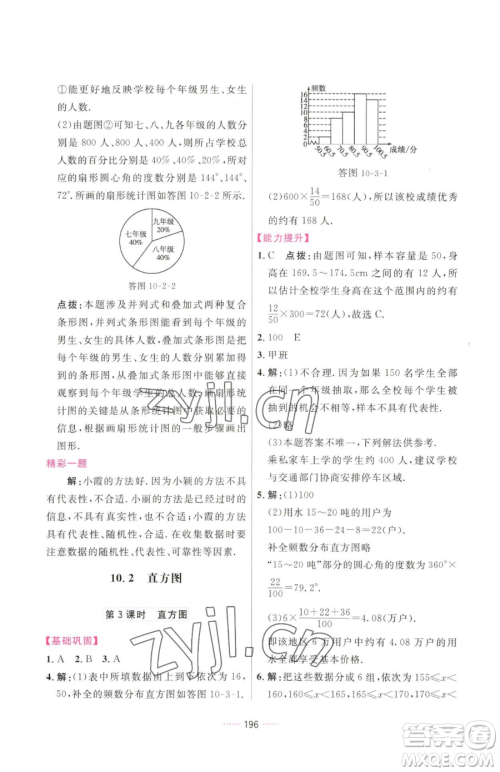 ①能更好地反映学校每个年级男生、女生
的人数.
(2)由题图②可知七、八、九各年级的人数分
别为 800、800、400 人,各占总人数的
百分比分别为 40%、40%、20%,所对应
的扇形圆心角的度数分别是 144°、144°、
72°. 所画的扇形统计图如答图 10-2-2.
九年级
20%
七年级
40%
八年级
40%
答图 10-2-2
点拨:本题涉及并列式和叠加式两种复合
条形图,并列式条形图可看出每个年级男
生、女生的具体人数,叠加式条形图可直接
观察到每个年级学生的总人数,画扇形统
计图的关键是从条形统计图中获取总体数
据. 根据画扇形统计图的一般步骤画出扇
形图形.
精彩一题
解:小霞的方法好. 因为小颖的方法不具
有代表性,小丽的方法不具有代表性、随机
性、公平性. 小霞的方法具有代表性、随机
性、公平性,所以小霞的方法好. 收集数据时要
注意数据的随机性、代表性、公平性.
10.2 直方图
第 3 课时 直方图
【基础巩固】
1. A 2. B 3. A
4. 解:(1)表中所填数据从上到下依次为 16,
50,补全的频数分布直方图如答图 10-3-1.
频数
16
14
12
10
8
6
4
2
50.5
60.5
70.5
80.5
90.5
100.5
成绩/分
答图 10-3-1
(2)600×14/50=168(人),故该校成绩优秀
的约有 168 人.
【能力提升】
1. C 点拨:由题图可知,样本容量是 50,身
高在 169.5～174.5cm 之间的有 12 人,所
以估计全校学生身高在这个范围内的约有
12/50×300=72(人),故选 C.
2. 100 E
3. 甲班
4. 解:(1)不合理. 因为如果 150 名学生全部
在同一个年级抽取,那么全校每个学生被
抽到的机会不相等,样本不具有代表性.
(2)略
(3)本题答案不唯一,下列答案供参考.
乘私家车上学的学生约有 400 人,建议学校
与交通部门协商安排停车区域.
5. 解:(1)100
(2)用水 15～20 吨的用户
100-10-36-24-8=22(户)
补全频数分布直方图略
“15～20 吨”部分的圆心角的度数=360°×
22/100=79.2°
(3)6×(10+22+36)/100=4.08(万户)
即该地区 6 万用户中约有 4.08 万户的用
水全部享受基本价格.
6. 解:把这些数据分成 6 组,依次为 155≤x<
160、160≤x<165、165≤x<170、170≤x<
196
zyjl.cn
zyjl.cn
答案圈
MXQE.COM